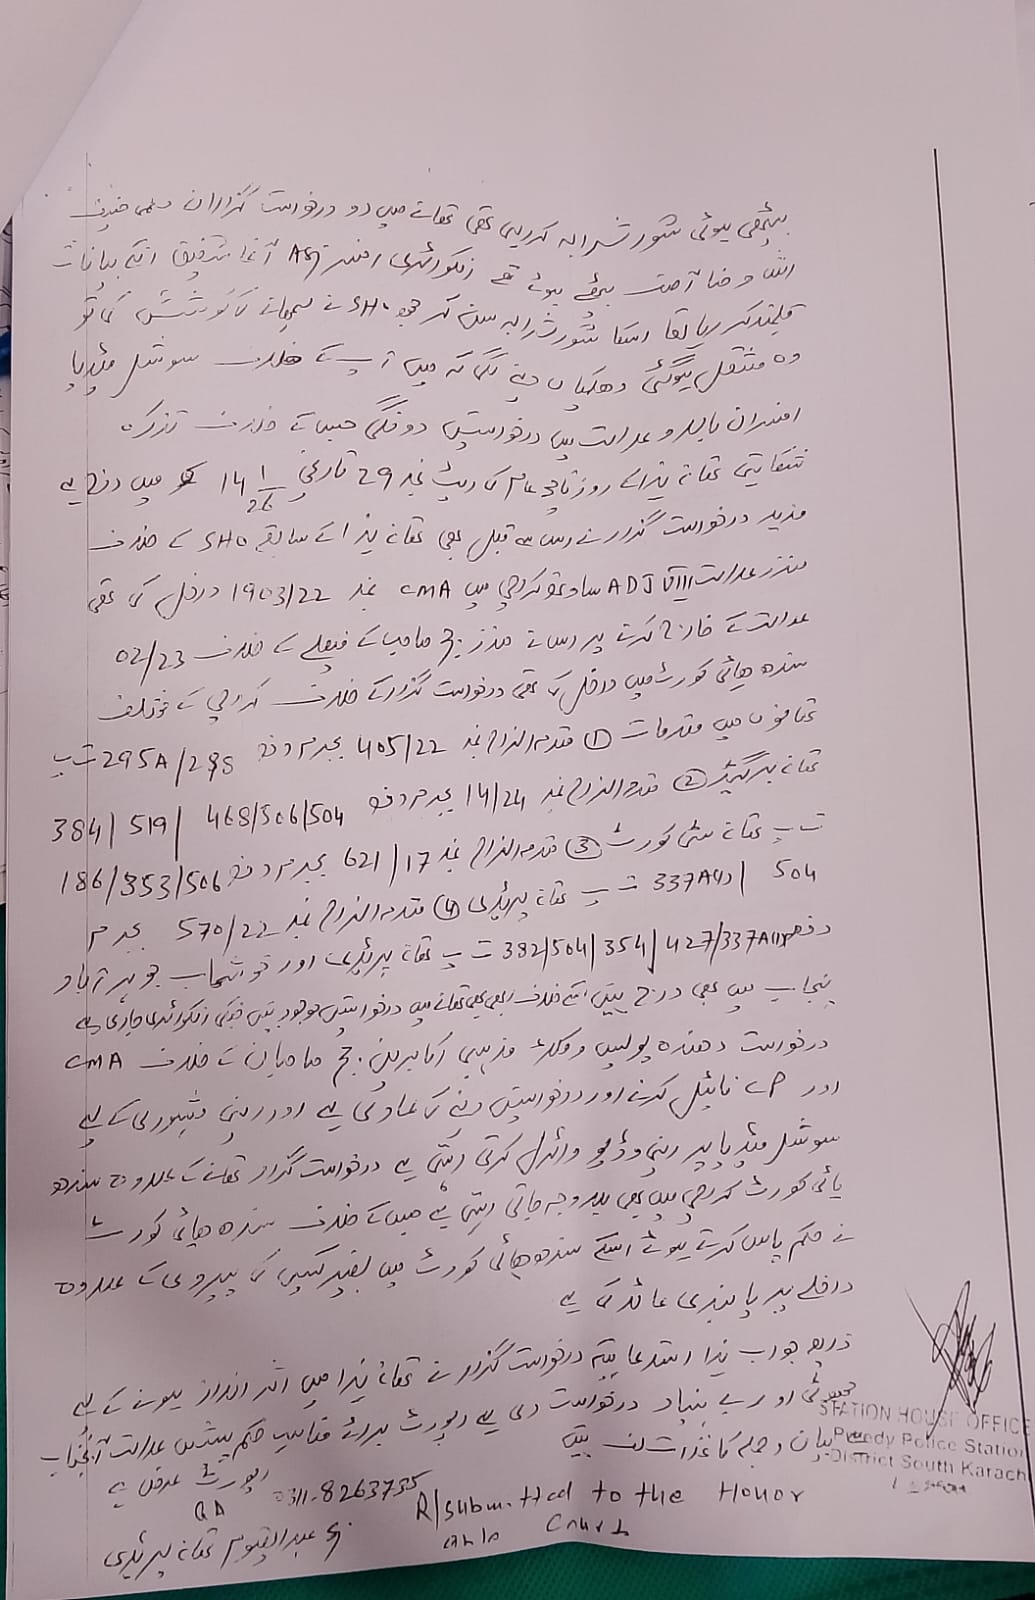 بیٹھی ہوئی شور شرابہ کر رہی تھی تھانے میں دو درخواست گزاران
انکوائری افسر ASI آغا شفیق انکے بیانات
قلمبند کر رہا تھا اسکا شور شرابہ سن کر مجھ SHO نے سمجھانے کی کوشش کی تو
وہ مشتعل ہوگئی دھمکیاں دینے لگی کہ میں آپ کے خلاف سوشل میڈیا
افسران بالا و عدالت میں درخواستیں دونگی جس کے خلاف تذکرہ
شکایتی تھانہ ہذا کے روزنامچہ عام کی رپٹ نمبر 29 تاریخ 14 1/26 میں درج ہے
مزید درخواست گزار نے اس سے قبل بھی تھانہ ہذا کے سابقہ SHO کے خلاف
معزز عدالت ADJ VIII ساؤتھ کراچی میں CMA نمبر 1903/22 داخل کی تھی
عدالت کے خارج کرنے پر اس نے معزز جج صاحب کے فیصلے کے خلاف 02/23
سندھ ہائی کورٹ میں داخل کی تھی درخواست گزار کے خلاف کراچی کے مختلف
تھانوں میں مقدمات ① مقدمہ الزام نمبر 405/22 بجرم دفعہ 295A/298 ت پ
تھانہ بریگیڈ ② مقدمہ الزام نمبر 14/24 بجرم دفعہ 468/506/504 384/519/
ت پ تھانہ سٹی کورٹ ③ مقدمہ الزام نمبر 621/17 بجرم دفعہ 186/353/506
504 / 337A(i) ت پ تھانہ پریڈی ④ مقدمہ الزام نمبر 570/22 بجرم
دفعہ 382/504/354/427/337A ت پ تھانہ پریڈی اور خوشاب جوہر آباد
پنجاب میں بھی درج ہیں اسکے خلاف ابھی بھی تھانے میں درخواستیں موجود ہیں جنکی انکوائری جاری ہے
درخواست دھندہ پولیس وکلاء مذہبی اکابرین جج صاحبان کے خلاف CMA
اور CP فائیل کرنے اور درخواستیں دینے کی عادی ہے اور اپنی مشہوری کے لیے
سوشل میڈیا پر اپنی وڈیو وائرل کرتی رہتی ہے درخواست گزار تھانے کے علاوہ سندھ
ہائی کورٹ کراچی میں بھی بلاوجہ جاتی رہتی ہے جس کے خلاف سندھ ہائی کورٹ
نے حکم پاس کرتے ہوئے اسکے سندھ ہائی کورٹ میں بغیر کیس کی پیروی کے علاوہ
داخلے پر پابندی عائد کی ہے
ذریعہ جواب ہذا استدعا ہیکہ درخواست گزار نے تھانہ ہذا میں اثر انداز ہونے کے لیے
جھوٹی اور بے بنیاد درخواست دی ہے رپورٹ برائے مناسب حکم پیش عدالت آنجناب
بیان و جملہ کاغذات لف ہیں
رپورٹ عرض ہے
STATION HOUSE OFFICE
Preedy Police Station
District South Karachi
0311-8263735
R/submitted to the Honor
able Court
عبدالقیوم تھانہ پریڈی